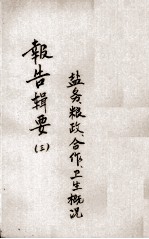 盐务粮政、合作、卫生概况
報告輯要
(三)